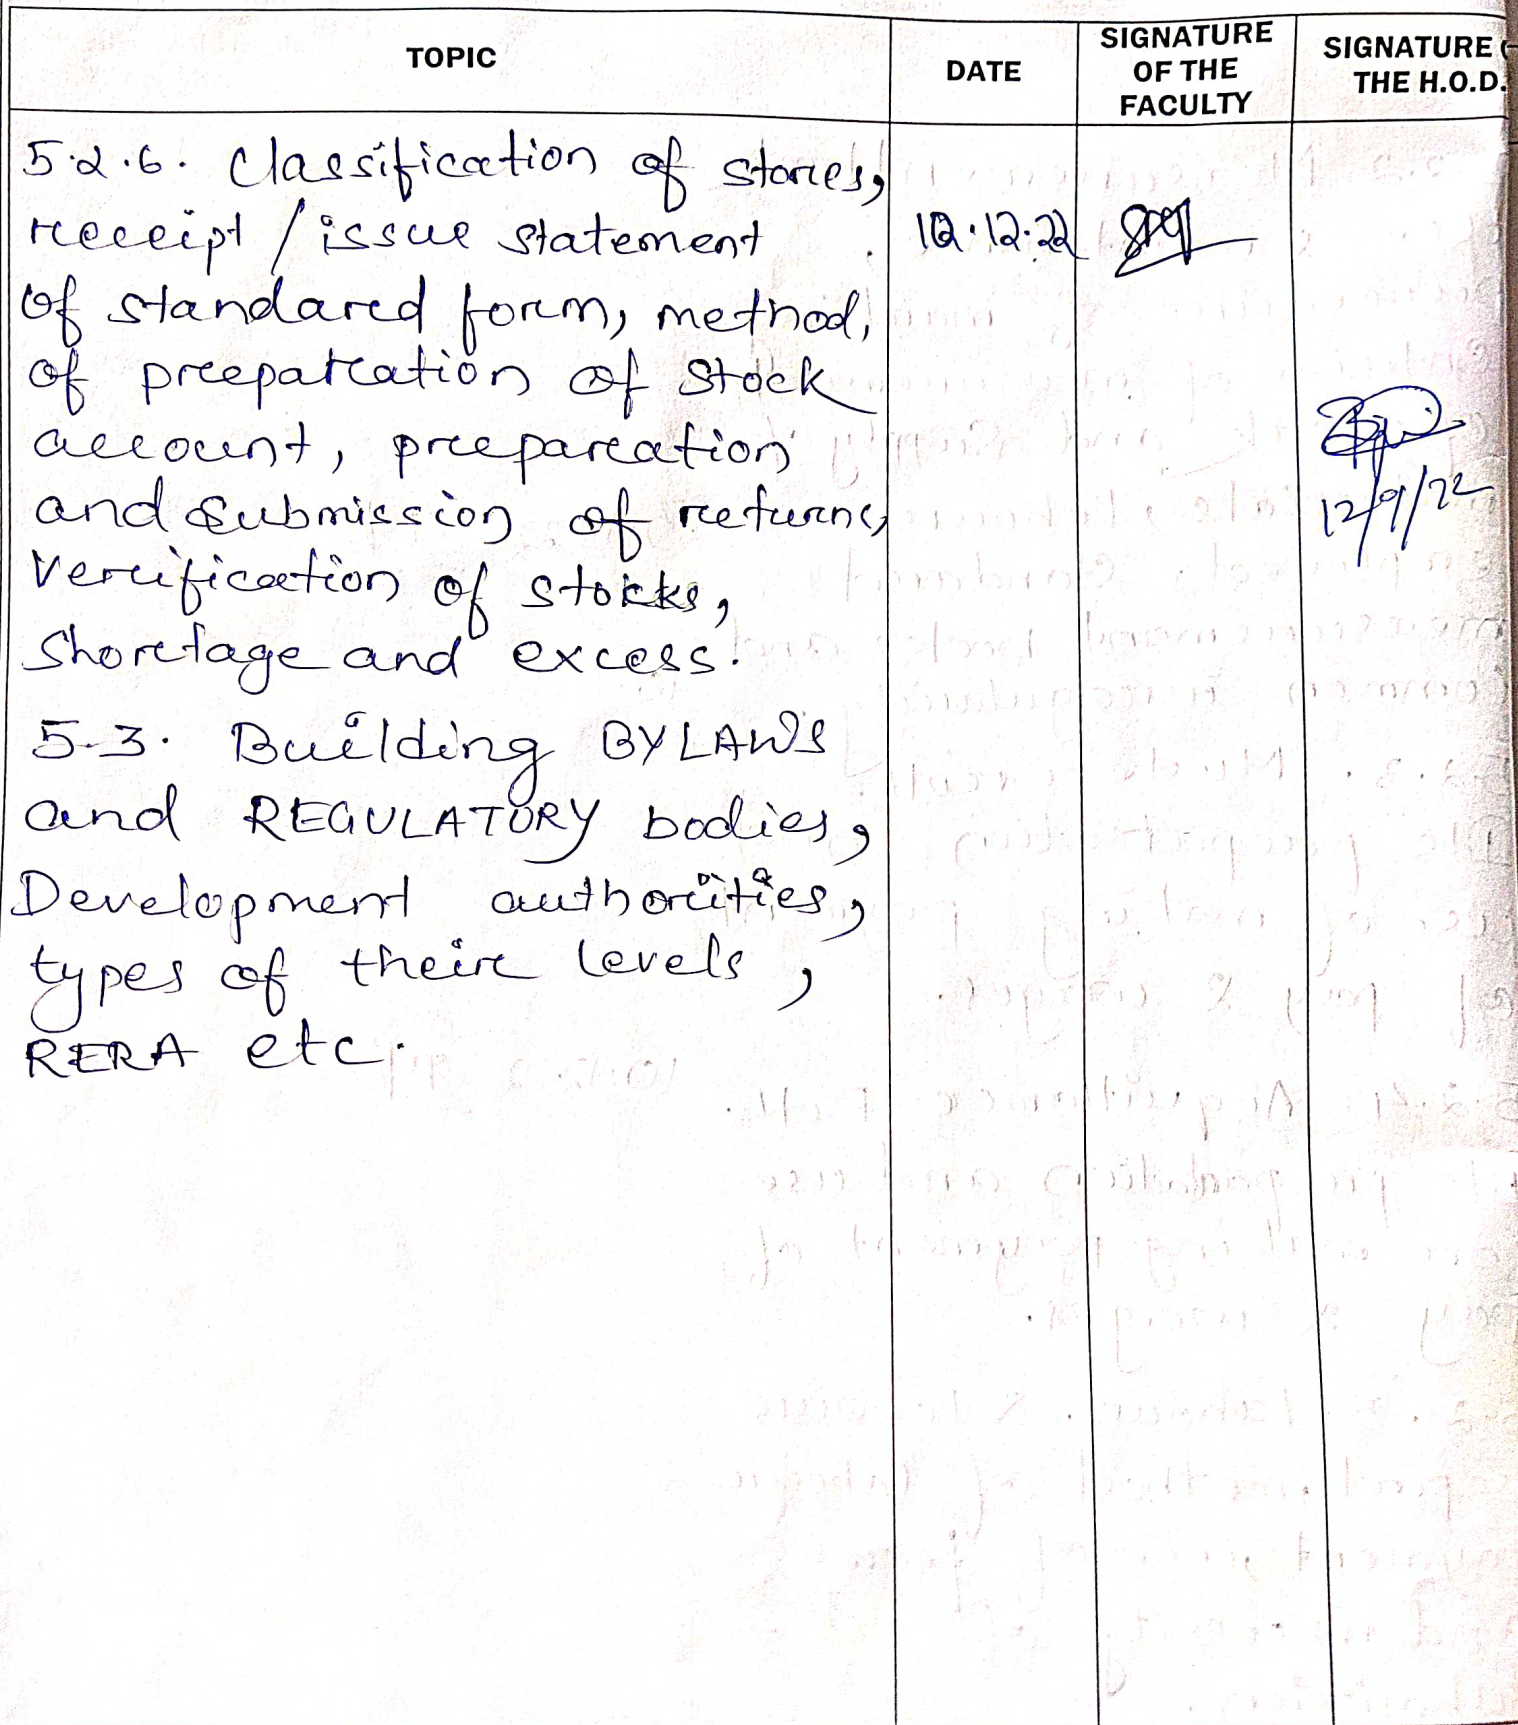 TOPIC
DATE
SIGNATURE
OF THE
FACULTY
SIGNATURE
THE H.O.D.
5.2.6. Classification of stores,
receipt / issue statement
12.12.22
of standard form, method,
of preparation of stock
account, preparation
and submission of returns,
12/9/22
Verification of stokks,
Shortage and excess.
5.3. Building BYLAWS
and REGULATORY bodies,
Development authorities,
types of their levels,
RERA etc.